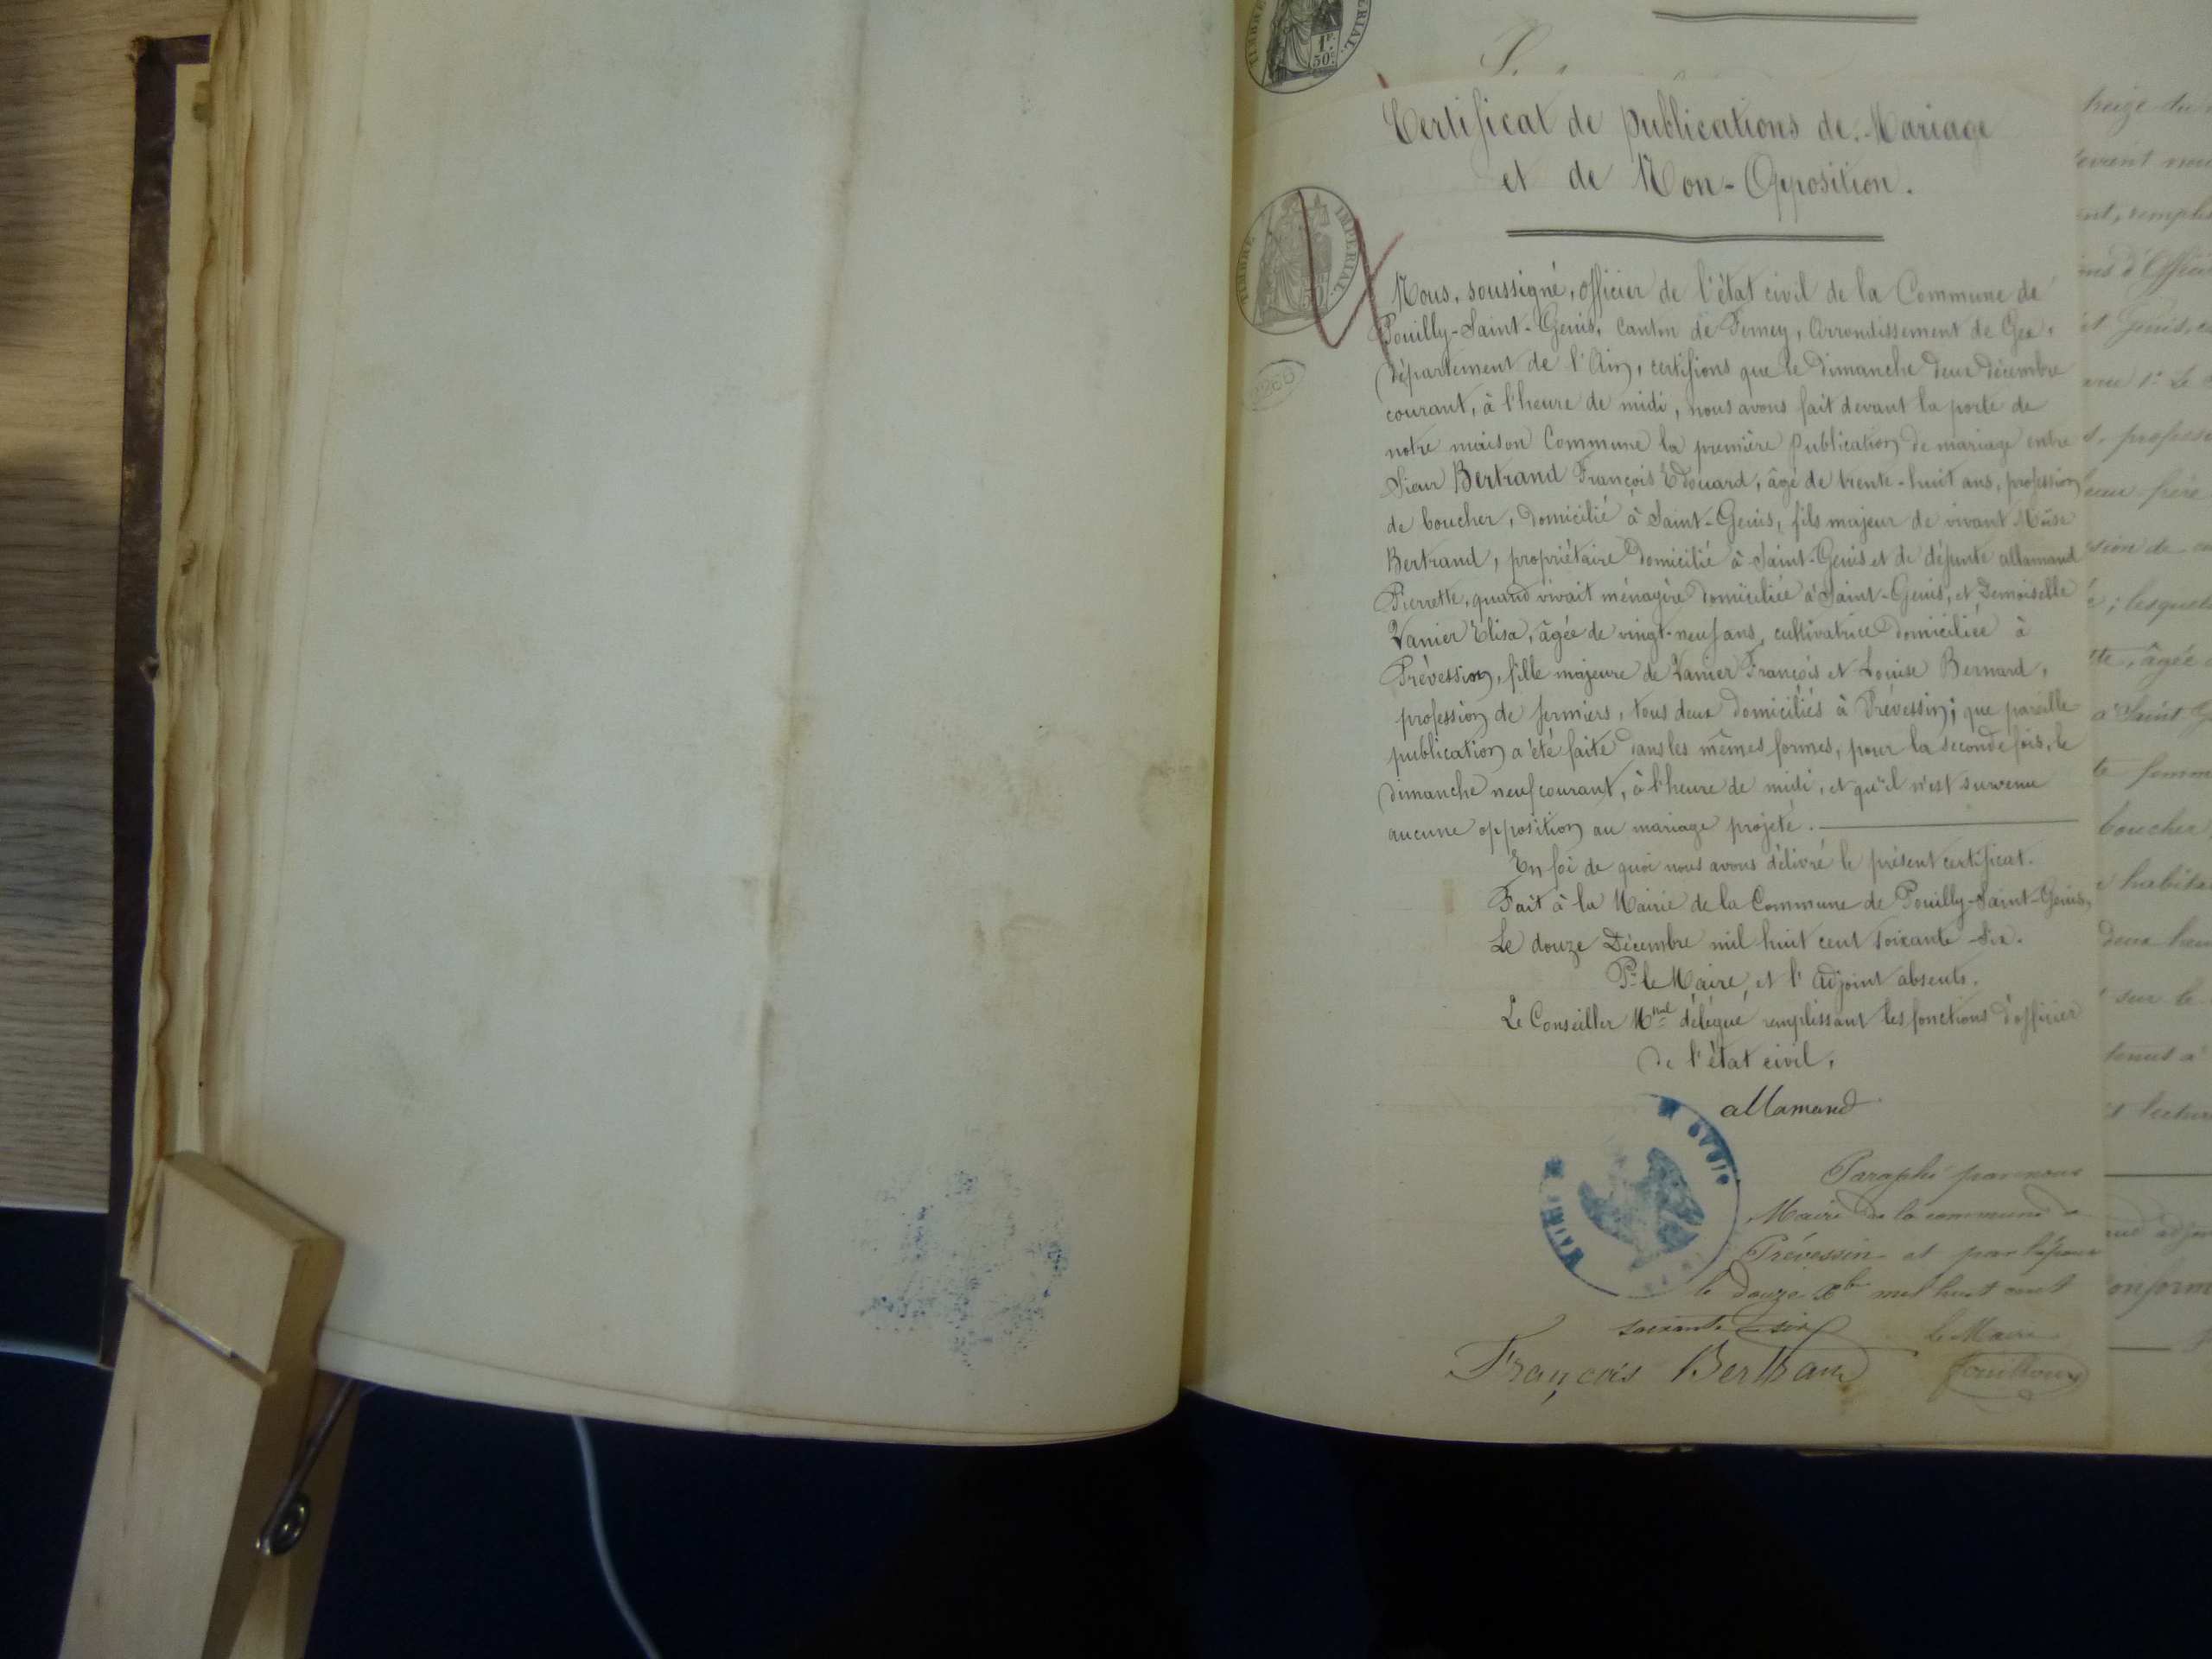 TIMBRE IMPERIAL
1F 50c
Certificat de publications de Mariage
et de Non-Opposition.
TIMBRE IMPERIAL
Nous, soussigné, officier de l'état civil de la Commune de
Pouilly-Saint-Genis, Canton de Ferney, Arrondissement de Gex,
département de l'Ain, certifions que le dimanche deux décembre
courant, à l'heure de midi, nous avons fait devant la porte de
notre maison Commune la première publication de mariage entre
Sieur Bertrand François Edouard, âgé de trente-huit ans, profession
de boucher, domicilié à Saint-Genis, fils majeur de vivant Moïse
Bertrand, propriétaire domicilié à Saint-Genis et de défunte allamand
Pierrette, quand vivait ménagère domiciliée à Saint-Genis, et Demoiselle
Vanier Elisa, âgée de vingt-neuf ans, cultivatrice domiciliée à
Prévession, fille majeure de Vanier François et Louise Bernard,
profession de fermiers, tous deux domiciliés à Prévessin; que pareille
publication a été faite dans les mêmes formes, pour la seconde fois, le
dimanche neuf courant, à l'heure de midi, et qu'il n'est survenu
aucune opposition au mariage projeté.
En foi de quoi nous avons délivré le présent certificat.
Fait à la Mairie de la Commune de Pouilly-Saint-Genis,
Le douze Décembre mil huit cent soixante-six.
Pr le Maire, et l'adjoint absents.
Le Conseiller Mnal délégué remplissant les fonctions d'officier
de l'état civil,
allamand
MAIRIE DE POUILLY
Paraphé par nous
Maire de la commune de
Prévessin et par l'époux
le douze Xbre mil huit cent
soixante six
le Maire
François Bertrand
treize du
devant nous
ent, rempliss
ons d'Offici
st Genis, ca
s, professi
beau frère
sion de
é; lesquels
tte, âgée
à Saint G
te femm
boucher
habita
deux heu
sur le
tenus à
lecture
conform